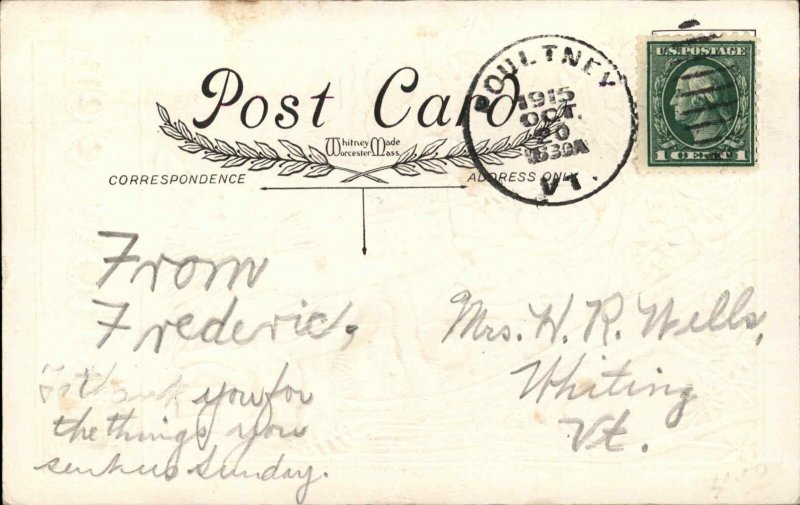 Post Card
Whitney Made
Worcester Mass.
CORRESPONDENCE
ADDRESS ONLY
POULTNEY
1915
OCT.
VT.
U.S. POSTAGE
1 CENT 1
From
Frederic,
thank you for
the things you
sent us Sunday.
Mrs. H. R. Wells,
Whiting
Vt.